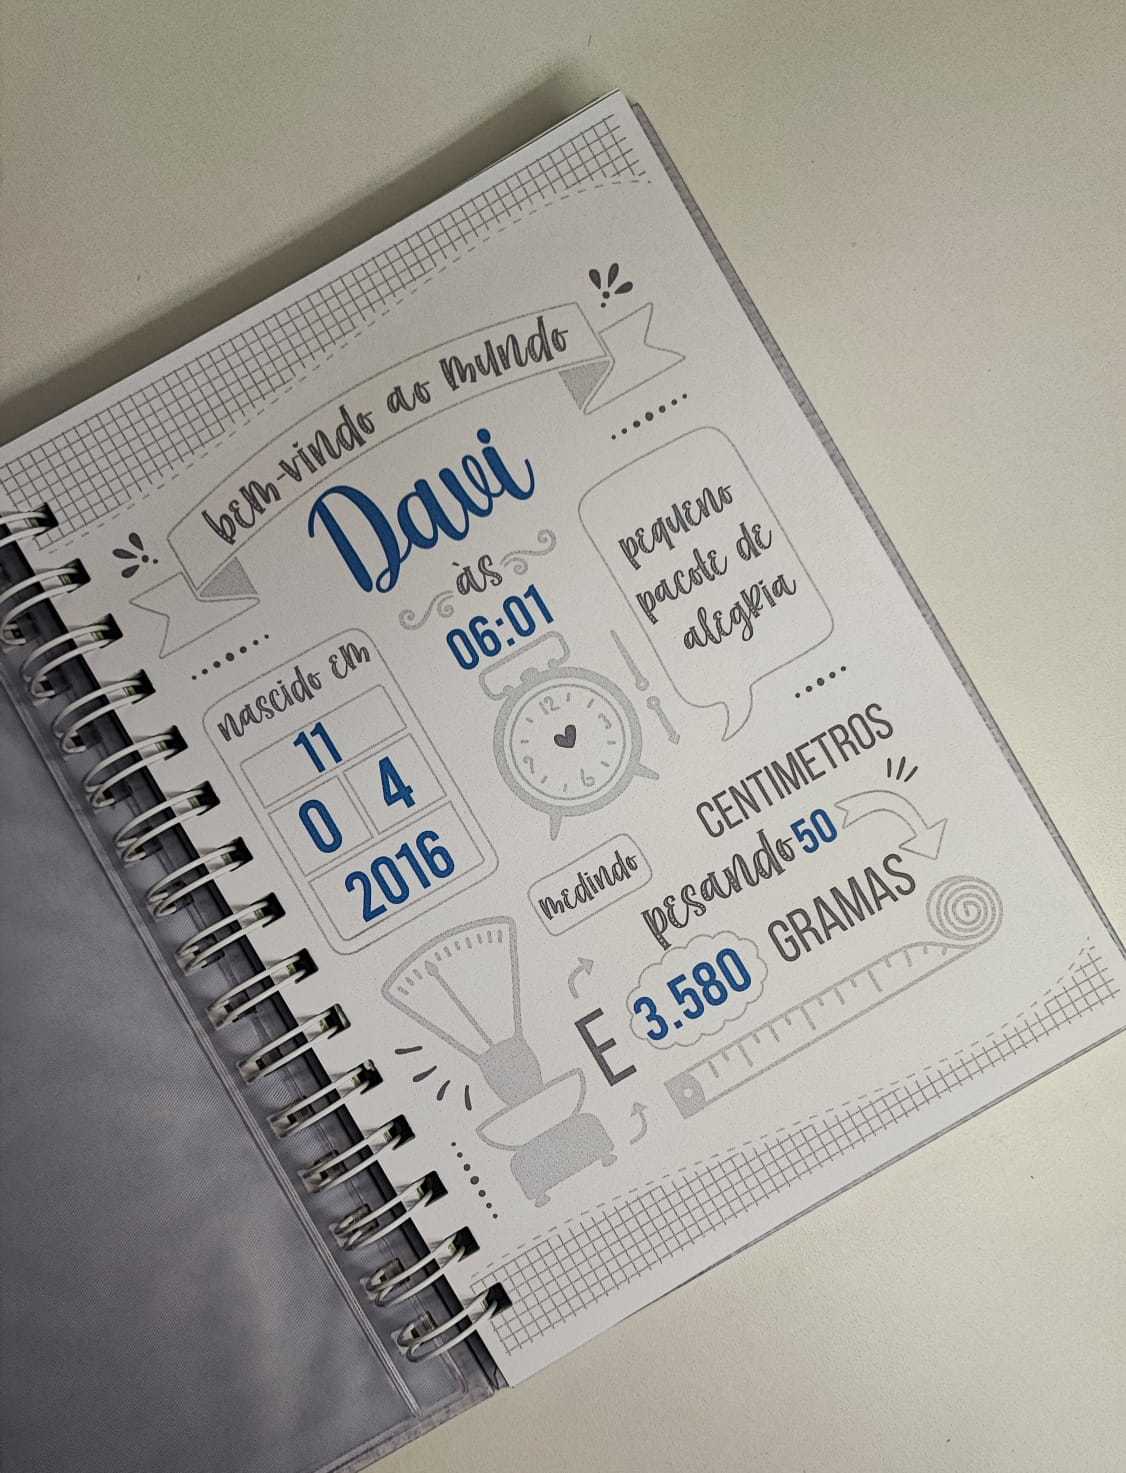 bem-vindo ao mundo
Davi
às
06:01
pequeno
pacote de
alegria
nascido em
11
0 4
2016
12
3
6
medindo
CENTIMETROS
pesando 50
GRAMAS
E 3.580